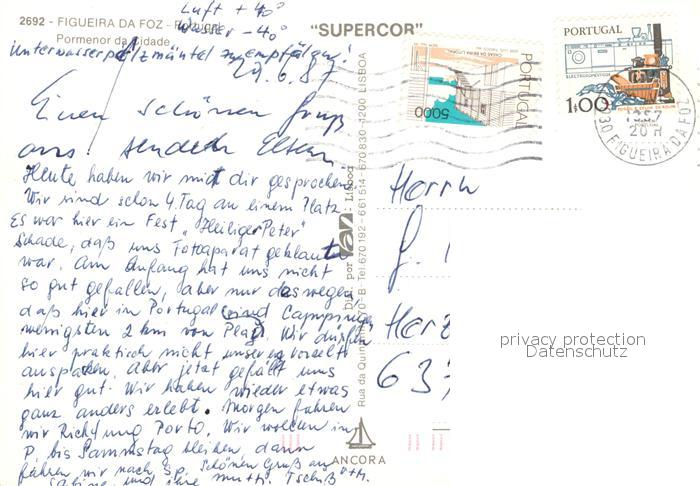 2692 - FIGUEIRA DA FOZ - Portugal
Pormenor da Cidade
"SUPERCOR"
Luft + 40°
Wasser - 40°
Unterwasserpelzmäntel zu empfehlen!
29.6.87
Einen schönen Gruß
aus! senden Eltern
Heute haben wir mit dir gesprochen
Wir sind schon 4. Tag an einem Platz
Es war hier ein Fest "Heiliger Peter"
Schade, daß uns Fotoaparat geklaut
war. Am Anfang hat uns nicht
so gut gefallen, aber nur deswegen
daß hier in Portugal sind Campings
wenigsten 2 km von Plaz. Wir dürften
hier praktisch nicht unser
auspacken. Aber jetzt gefällt uns
hier gut. Wir haben wieder etwas
ganz anders erlebt. Morgen fahren
wir Richtung Porto. Wir wollen in
P. bis Sammstag bleiben, dann
fahren wir nach Sp. Schönen Gruß an
Sabine und ihre Mutti. Tschüß
Rua da Quin 670-B - Tel 670 192 - 661 514 - 670 830 - 1200 LISBOA
Dist. por
Lisboa
ÂNCORA
PORTUGAL
5000
PORTUGAL
ELECTRODOMÉSTICOS
1$00
1987
20 H
FIGUEIRA DA FO
Herrn
J.
Herz
63
privacy protection
Datenschutz